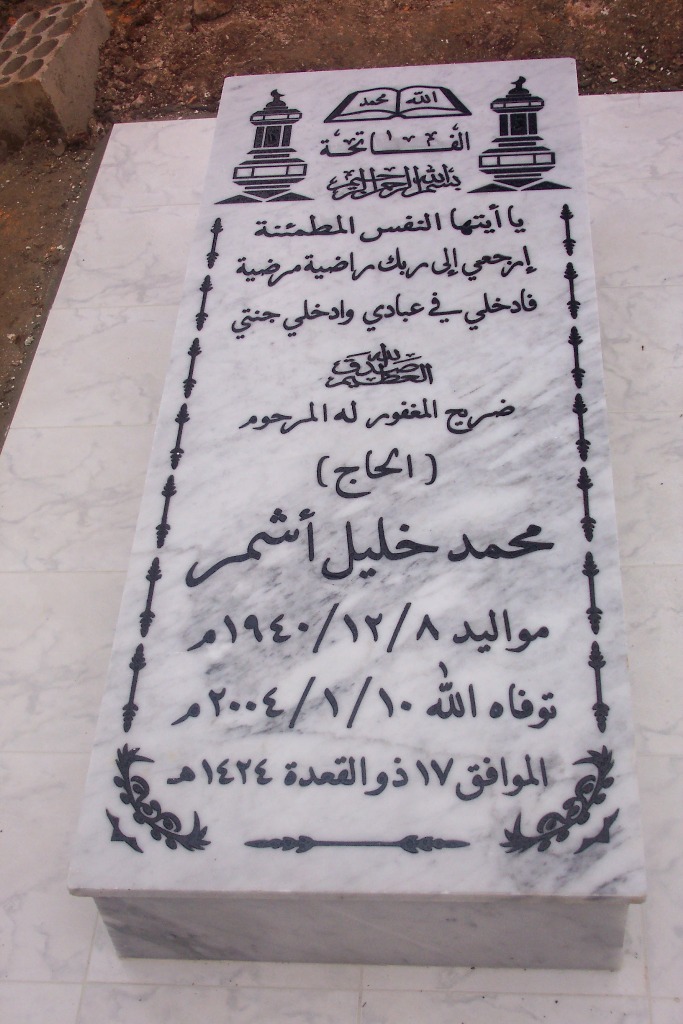 الله محمد
الفاتحة
بسم الله الرحمن الرحيم
يا أيتها النفس المطمئنة
إرجعي إلى ربك راضية مرضية
فادخلي في عبادي وادخلي جنتي
صدق الله العظيم
ضريح المغفور له المرحوم
(الحاج)
محمد خليل أشمر
مواليد ٨/١٢/١٩٤٠م
توفاه الله ١٠/١/٢٠٠٤م
الموافق ١٧ ذو القعدة ١٤٢٤هـ